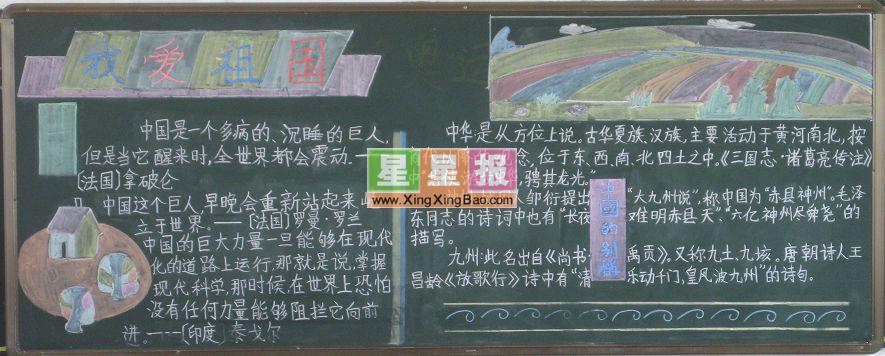 我爱祖国
中国是一个多病的、沉睡的巨人,
但是当它醒来时,全世界都会震动.——
〔法国〕拿破仑
中国这个巨人早晚会重新站起来屹
立于世界.——〔法国〕罗曼·罗兰
中国的巨大力量一旦能够在现代
化的道路上运行,那就是说,掌握
现代科学,那时候,在世界上恐怕
没有任何力量能够阻拦它向前
进.——〔印度〕泰戈尔
中华:是从方位上说。古华夏族、汉族,主要活动于黄河南北,按
念,位于东、西、南、北四土之中。《三国志·诸葛亮传注》
,骋其龙光。”
人邹衍提出 “大九州说”,称中国为“赤县神州”。毛泽
东同志的诗词中也有“长夜 难明赤县天”“六亿神州尽舜尧”的
描写。
九州:此名出自《尚书· 禹贡》。又称九土、九垓。唐朝诗人王
昌龄《放歌行》诗中有“清 乐动千门,皇风波九州”的诗句。
中国的别称
星星报
www.XingXingBao.com